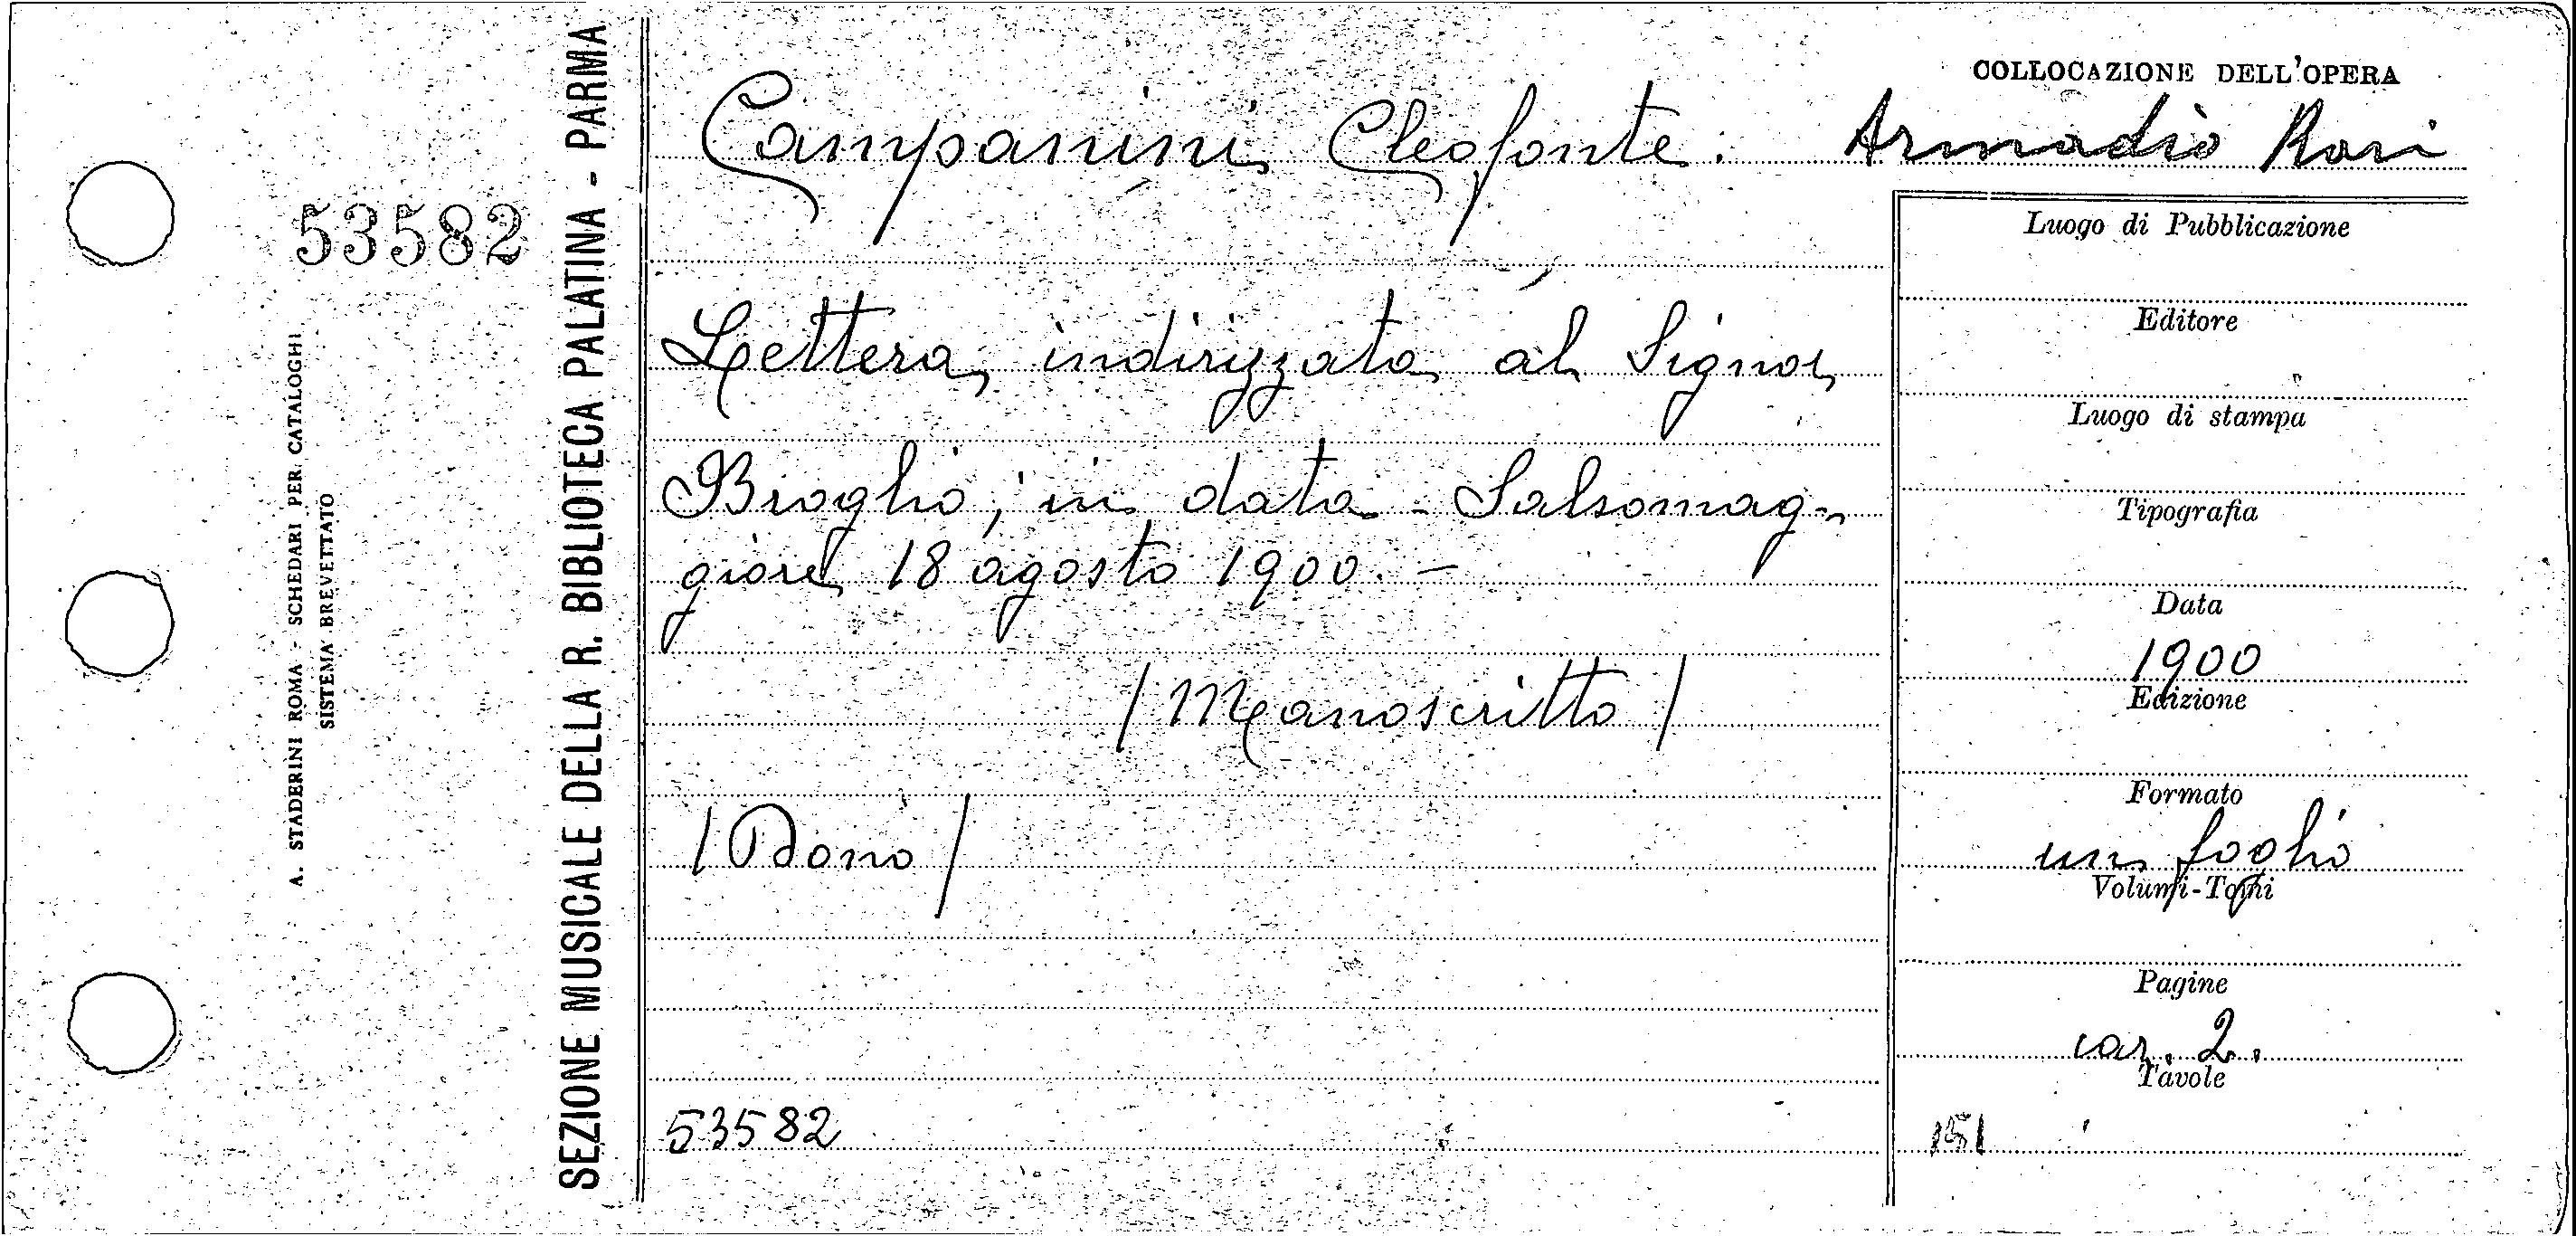 COLLOCAZIONE DELL'OPERA
Campanini Cleofonte. Armadio Rari
53582
SEZIONE MUSICALE DELLA R. BIBLIOTECA PALATINA - PARMA
A. STADERINI ROMA - SCHEDARI PER CATALOGHI
SISTEMA BREVETTATO
Lettera, indirizzata al Signor
Broglio, in data - Salsomag-
giore 18 agosto 1900. -
/Manoscritto/
/Dono/
53582
Luogo di Pubblicazione
Editore
Luogo di stampa
Tipografia
Data
1900
Edizione
Formato
un foglio
Volumi-Tomi
Pagine
car. 2.
Tavole
151